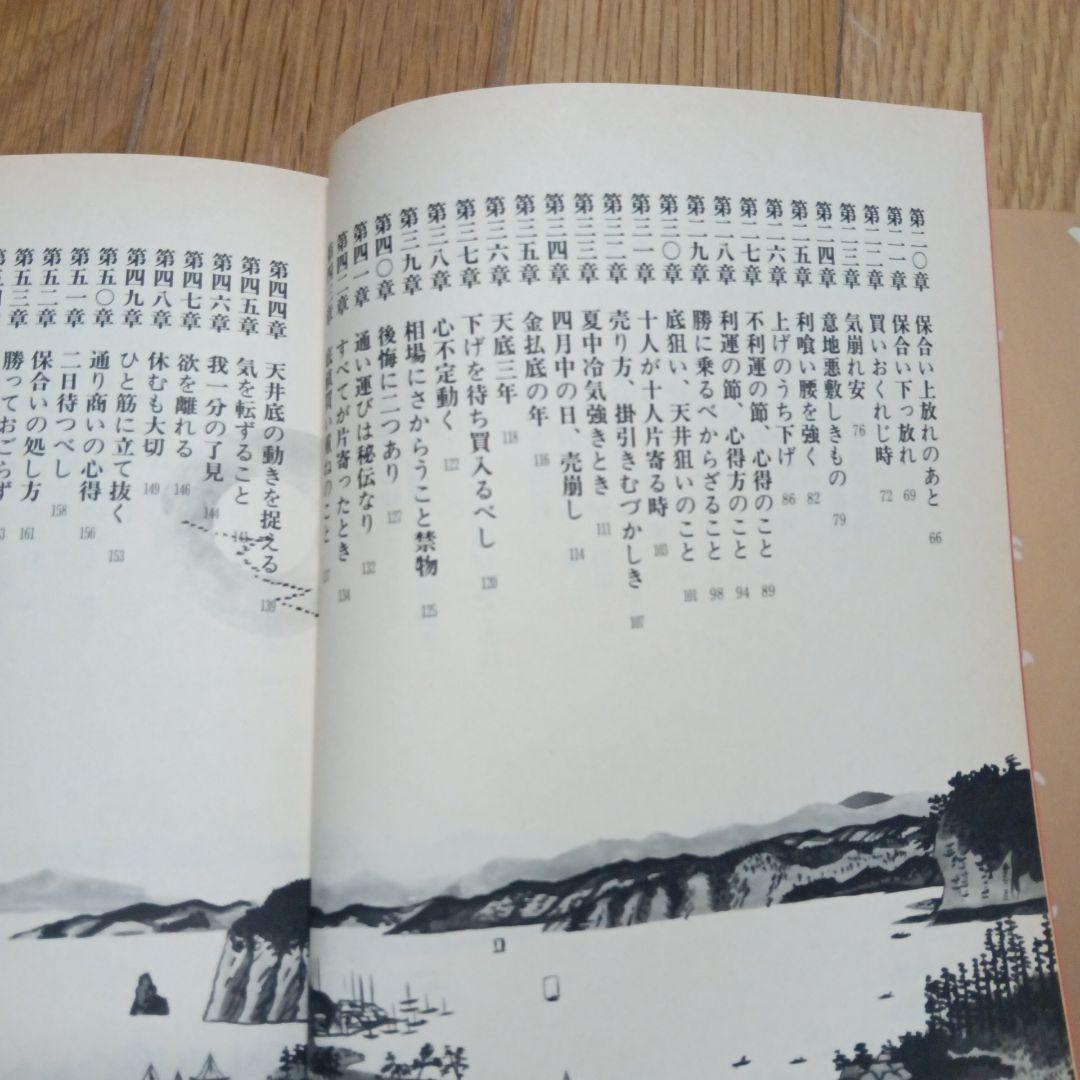 第二〇章 保合い上放れのあと 66
第二一章 保合い下っ放れ 69
第二二章 買いおくれじ時 72
第二三章 気崩れ安 76
第二四章 意地悪敷しきもの 79
第二五章 利喰い腰を強く 82
第二六章 上げのうち下げ 86
第二七章 不利運の節、心得のこと 89
第二八章 利運の節、心得方のこと 94
第二九章 勝に乗るべからざること 98
第三〇章 底狙い、天井狙いのこと 101
第三一章 十人が十人片寄る時 103
第三二章 売り方、掛引きむづかしき 107
第三三章 夏中冷気強きとき 111
第三四章 四月中の日、売崩し 114
第三五章 金払底の年 116
第三六章 天底三年 118
第三七章 下げを待ち買入るべし 120
第三八章 心不定動く 122
第三九章 相場にさからうこと禁物 125
第四〇章 後悔に二つあり 127
第四一章 通い運びは秘伝なり 132
第四二章 すべてが片寄ったとき 134
第四三章 買い重ねのこと
第四四章 天井底の動きを捉える 139
第四五章 気を転ずること
第四六章 我一分の了見 144
第四七章 欲を離れる 146
第四八章 休むも大切 149
第四九章 ひと筋に立て抜く 153
第五〇章 通り商いの心得 156
第五一章 二日待つべし 158
第五二章 保合いの処し方 161
第五三章 勝っておごらず